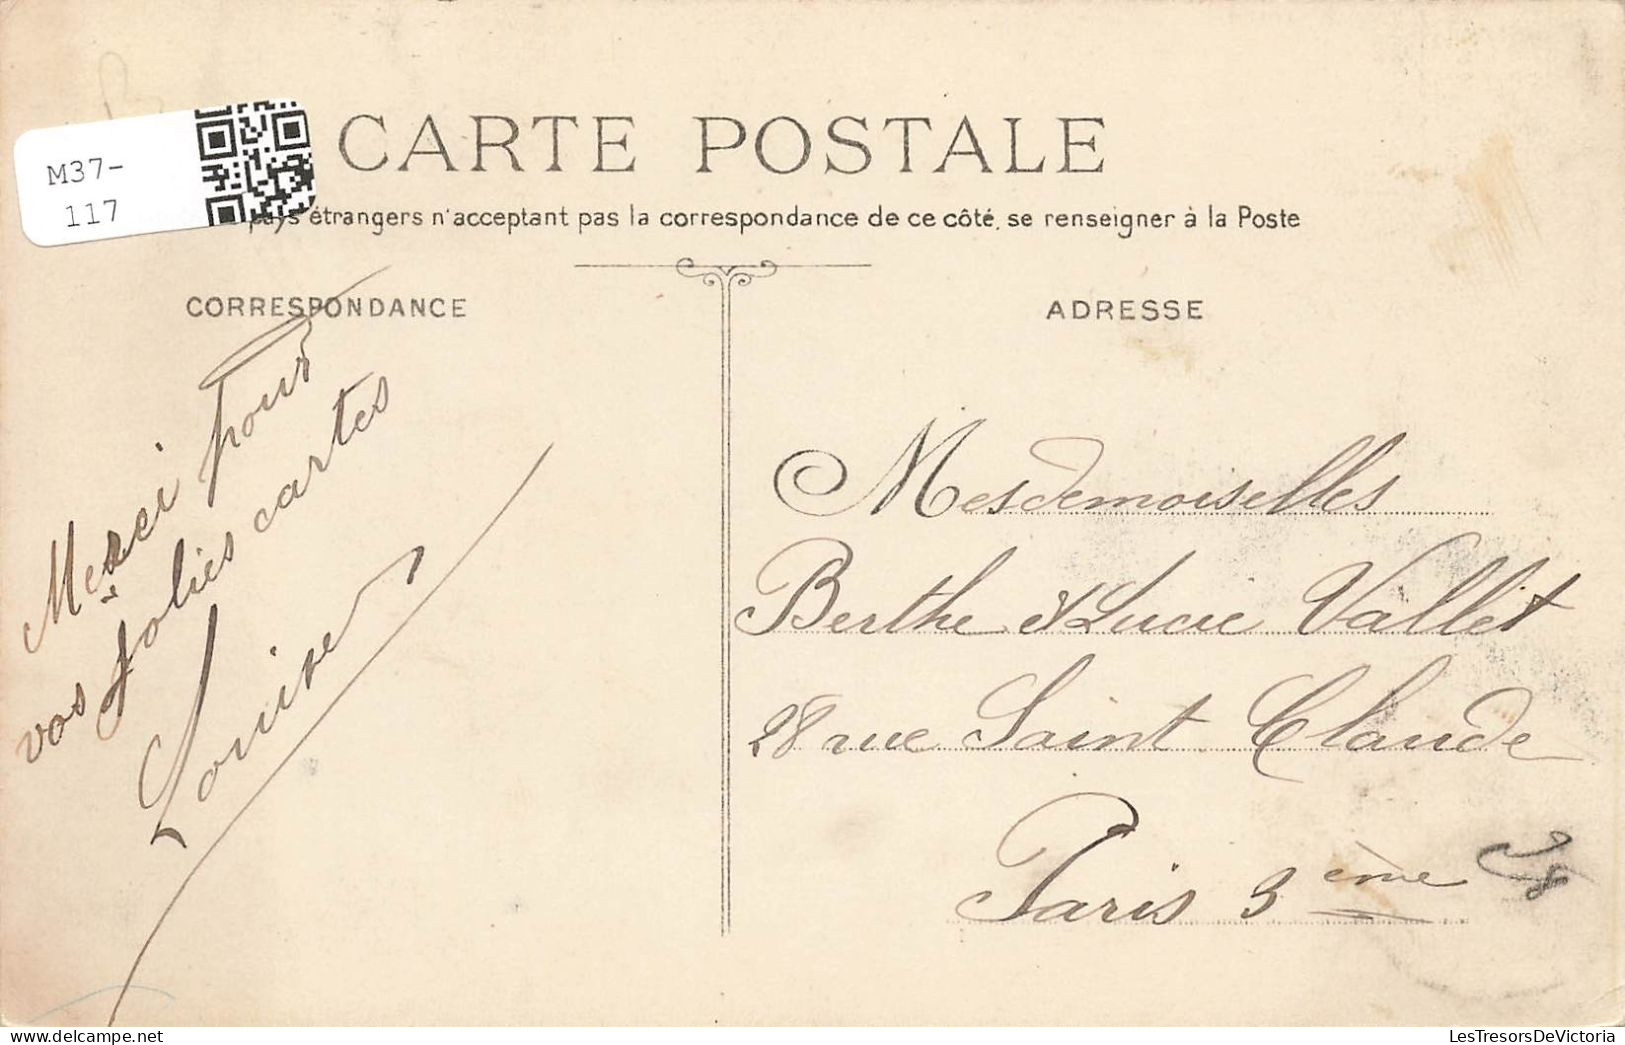 M37-
117
CARTE POSTALE
pays étrangers n'acceptant pas la correspondance de ce côté, se renseigner à la Poste
CORRESPONDANCE
ADRESSE
Merci pour
vos jolies cartes
Louise
Mesdemoiselles
Berthe & Lucie Vallet
28 rue Saint Claude
Paris 3ème
LesTresorsDeVictoria